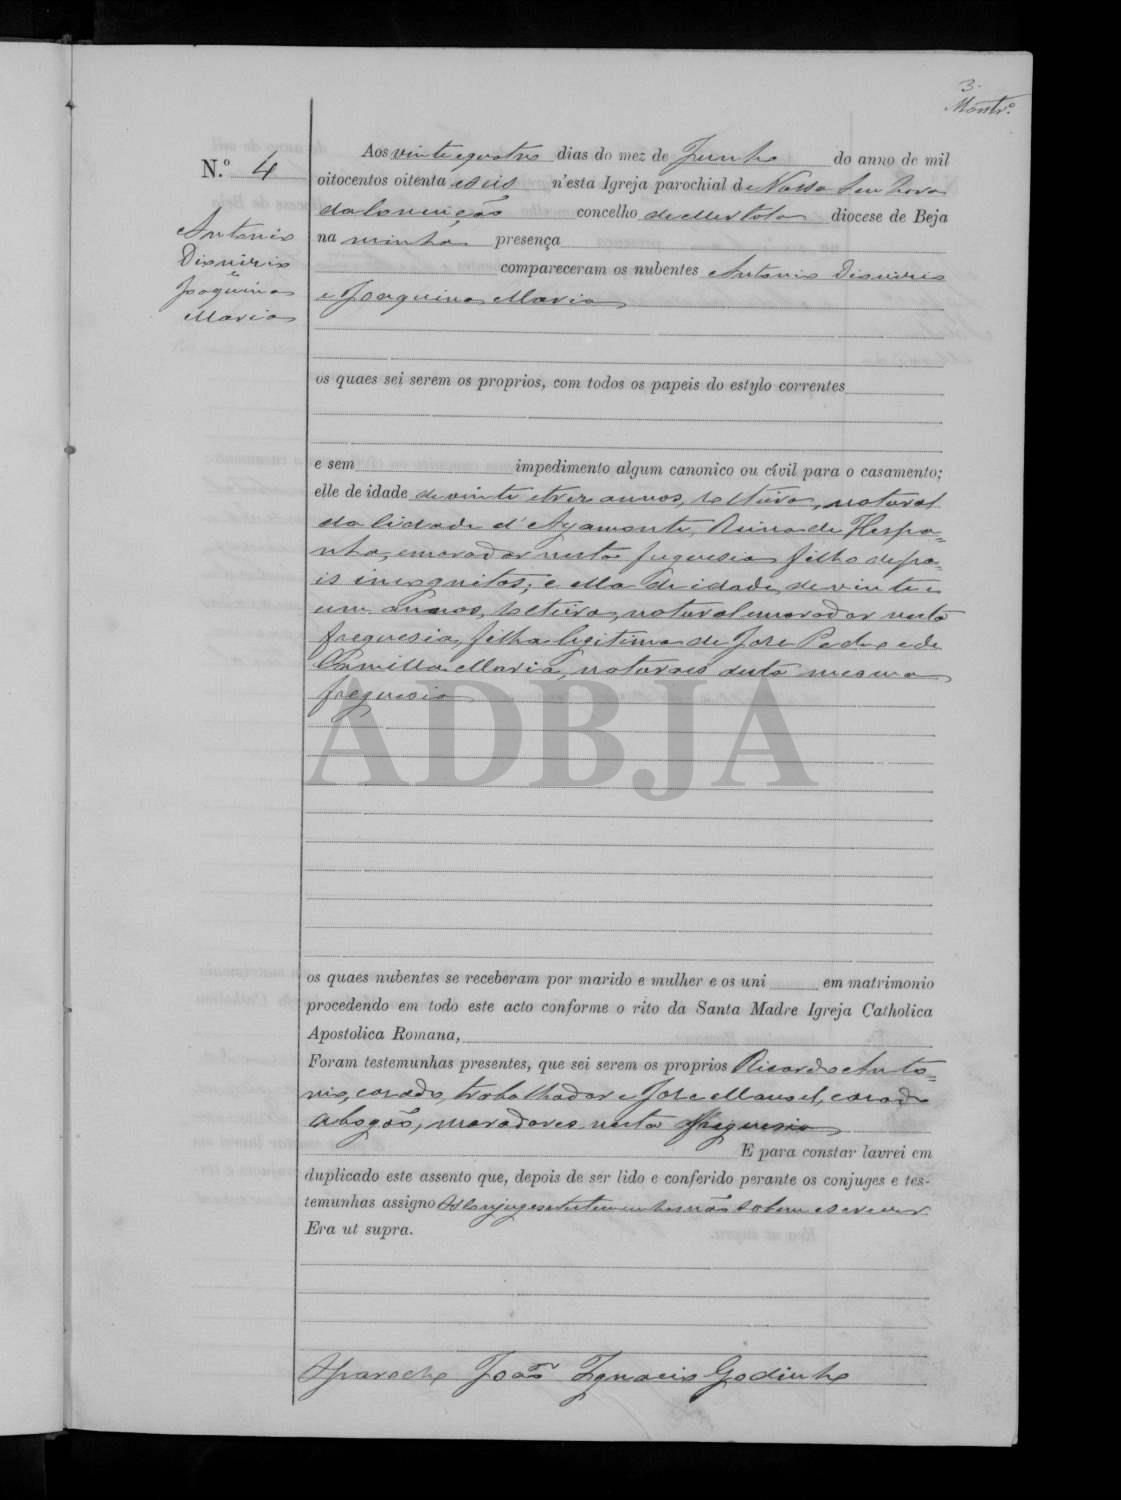 3.
Montr.º
N.º 4
Antonio
Dionirio
e
Joaquina
Maria
Aos vinte e quatro dias do mez de Junho do anno de mil
oitocentos oitenta e seis n'esta Igreja parochial de Nossa Senhora
da Conceição concelho de Mertola diocese de Beja
na minha presença
compareceram os nubentes Antonio Dionirio
e Joaquina Maria
os quaes sei serem os proprios, com todos os papeis do estylo correntes
e sem impedimento algum canonico ou civil para o casamento;
elle de idade de vinte e trez annos, solteiro, natural
da Cidade d'Ayamonte, Reino de Hespa=
nha, morador nesta freguesia filho de pa=
is incognitos; e ella de idade, de vinte e
um annos, solteira, natural e moradora nesta
freguesia, filha legitima de José Pedro e de
Camilla Maria, naturaes desta mesma
freguesia
ADBJA
os quaes nubentes se receberam por marido e mulher e os uni em matrimonio
procedendo em todo este acto conforme o rito da Santa Madre Igreja Catholica
Apostolica Romana,
Foram testemunhas presentes, que sei serem os proprios Ricardo Anto=
nio, casado, trabalhador e José Manuel, casado
Abogão, moradores nesta freguesia
E para constar lavrei em
duplicado este assento que, depois de ser lido e conferido perante os conjuges e tes-
temunhas assigno Os Conjuges e testemunhas não sabem escrever
Era ut supra.
O Parocho João Ignacio Godinho